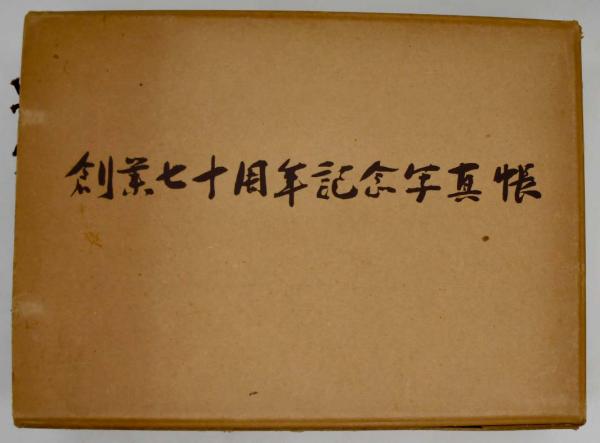 創業七十周年記念写真帳